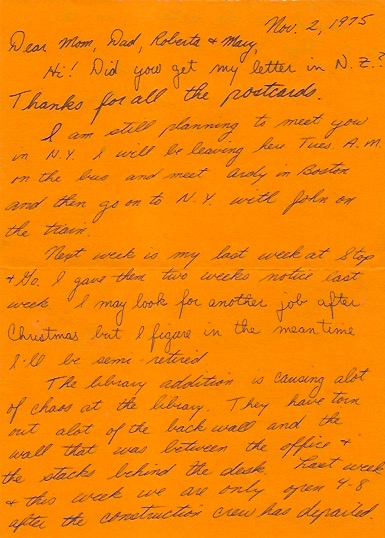 Nov. 2, 1975
Dear Mom, Dad, Roberta & Mary,
Hi! Did you get my letter in N.Z.?
Thanks for all the postcards.
I am still planning to meet you
in N.Y. I will be leaving here Tues. A.M.
on the bus and meet in Boston
and then go on to N.Y. with John on
the train.
Next week is my last week at Stop
& Go. I gave them two weeks notice last
week. I may look for another job after
Christmas but I figure in the meantime
I'll be semi-retired
The library addition is causing alot
of chaos at the library. They have torn
out alot of the back wall and the
wall that was between the office &
the stacks behind the desk. Last week
& this week we are only open 4-8
after the construction crew has departed